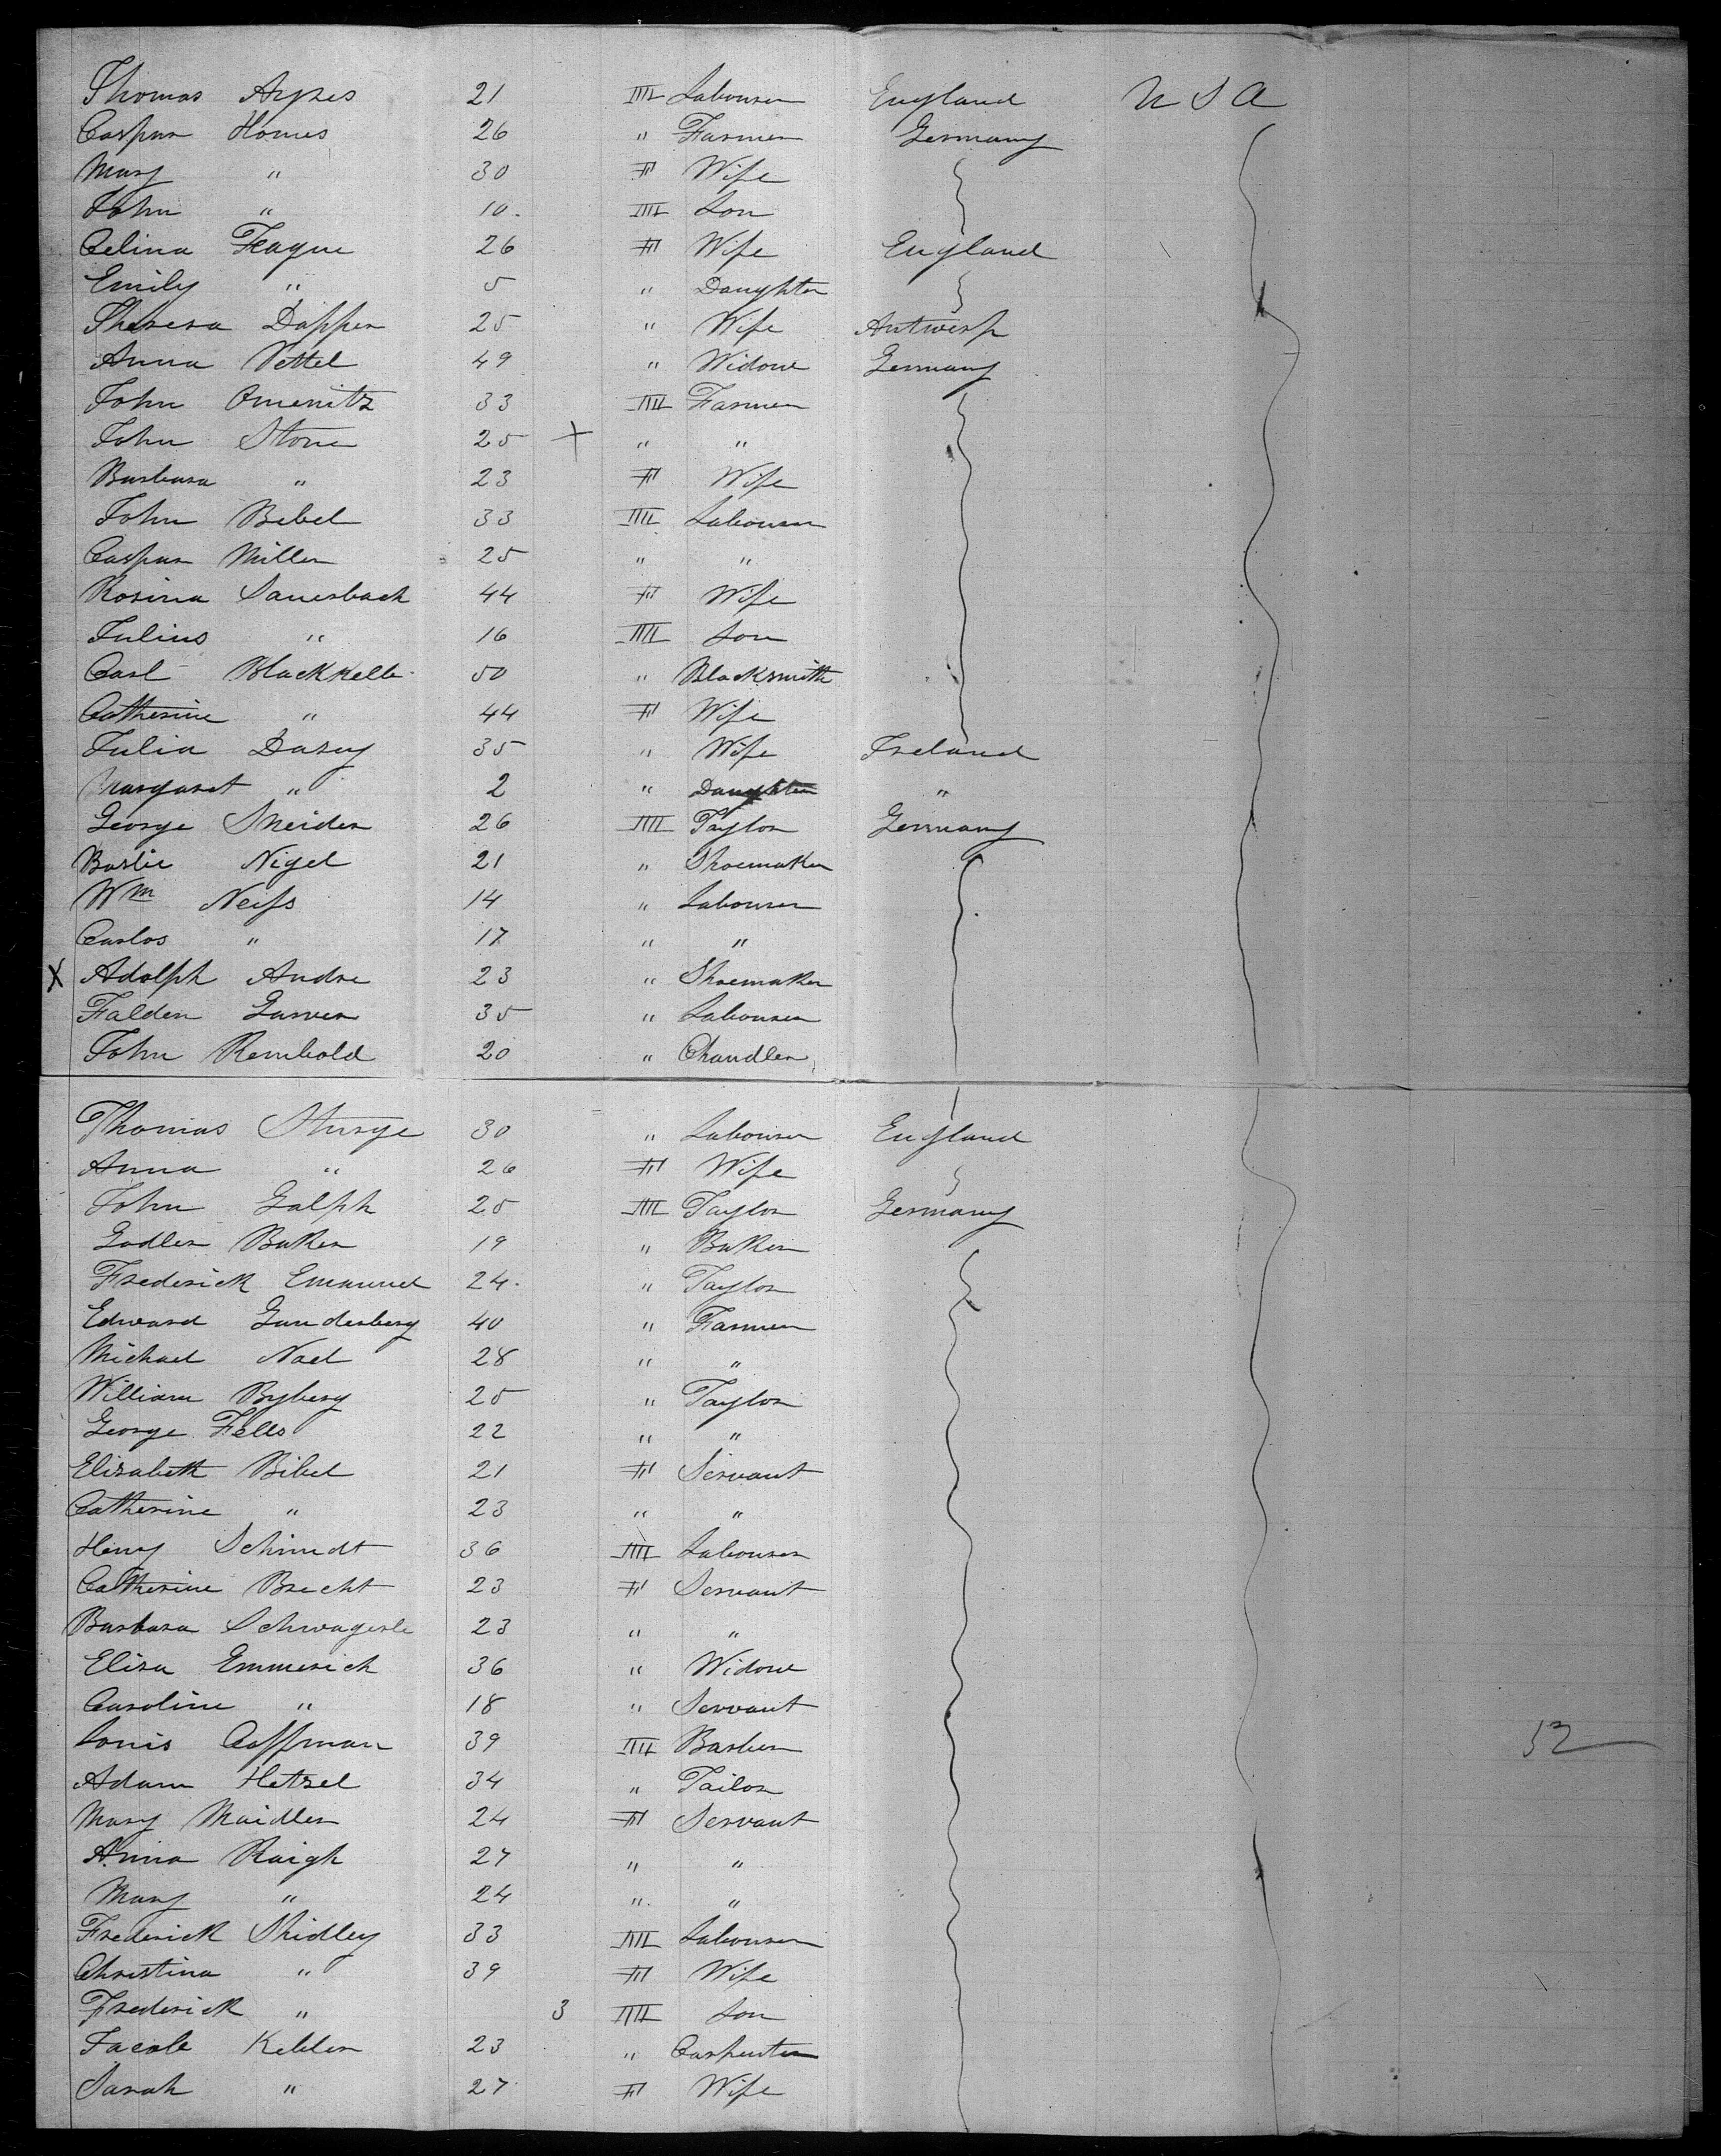 Thomas Ayres 21 Labourer England U S A
Caspar Homes 26 " Farmer Germany
Mary " 30 Wife
John " 10. Son
Celina Teague 26 Wife England
Emily " 5 " Daughter
Theresa Dapper 25 " Wife Antwerp
Anna Vettel 49 " Widow Germany
John Omenitz 33 Farmer
John Stone 25 + " "
Barbara " 23 Wife
John Bebel 33 Labourer
Caspar Miller 25 " "
Rosina Sauerbach 44 Wife
Julius " 16 Son
Carl 50 " Blacksmith
Catherine " 44 Wife
Julia Dasey 35 " Wife Ireland
Margaret " 2 " Daughter "
George Sneider 26 Taylor Germany
Nigel 21 " Shoemaker
Wm Neiss 14 " Labourer
Carlos " 17 " "
X Adolph Andre 23 " Shoemaker
Falden Garver 35 " Labourer
John Rembold 20 " Chandler
Thomas Sturge 30 " Labourer England
Anna " 26 Wife
John Galph 25 Taylor Germany
Godler Baker 19 " Baker
Frederick Emanuel 24. " Taylor
Edward Gunderberg 40 " Farmer
Michael Nael 28 " "
William Byberg 25 " Taylor
George Fells 22 " "
Elizabeth Bibel 21 Servant
Catherine " 23 " "
Henry Schmidt 36 Labourer
Catherine Brecht 23 Servant
Barbara Schwagerle 23 " "
Eliza Emmerich 36 " Widow
Caroline " 18 " Servant
Louis Coffman 39 Barber 52
Adam Hetzel 34 " Tailor
Mary Maidler 24 Servant
Anna Raigh 27 " "
Mary " 24 " "
Frederick Shidley 33 Labourer
Christina " 39 Wife
Frederick " 3 Son
Jacob Kebler 23 " Carpenter
Sarah " 27 Wife